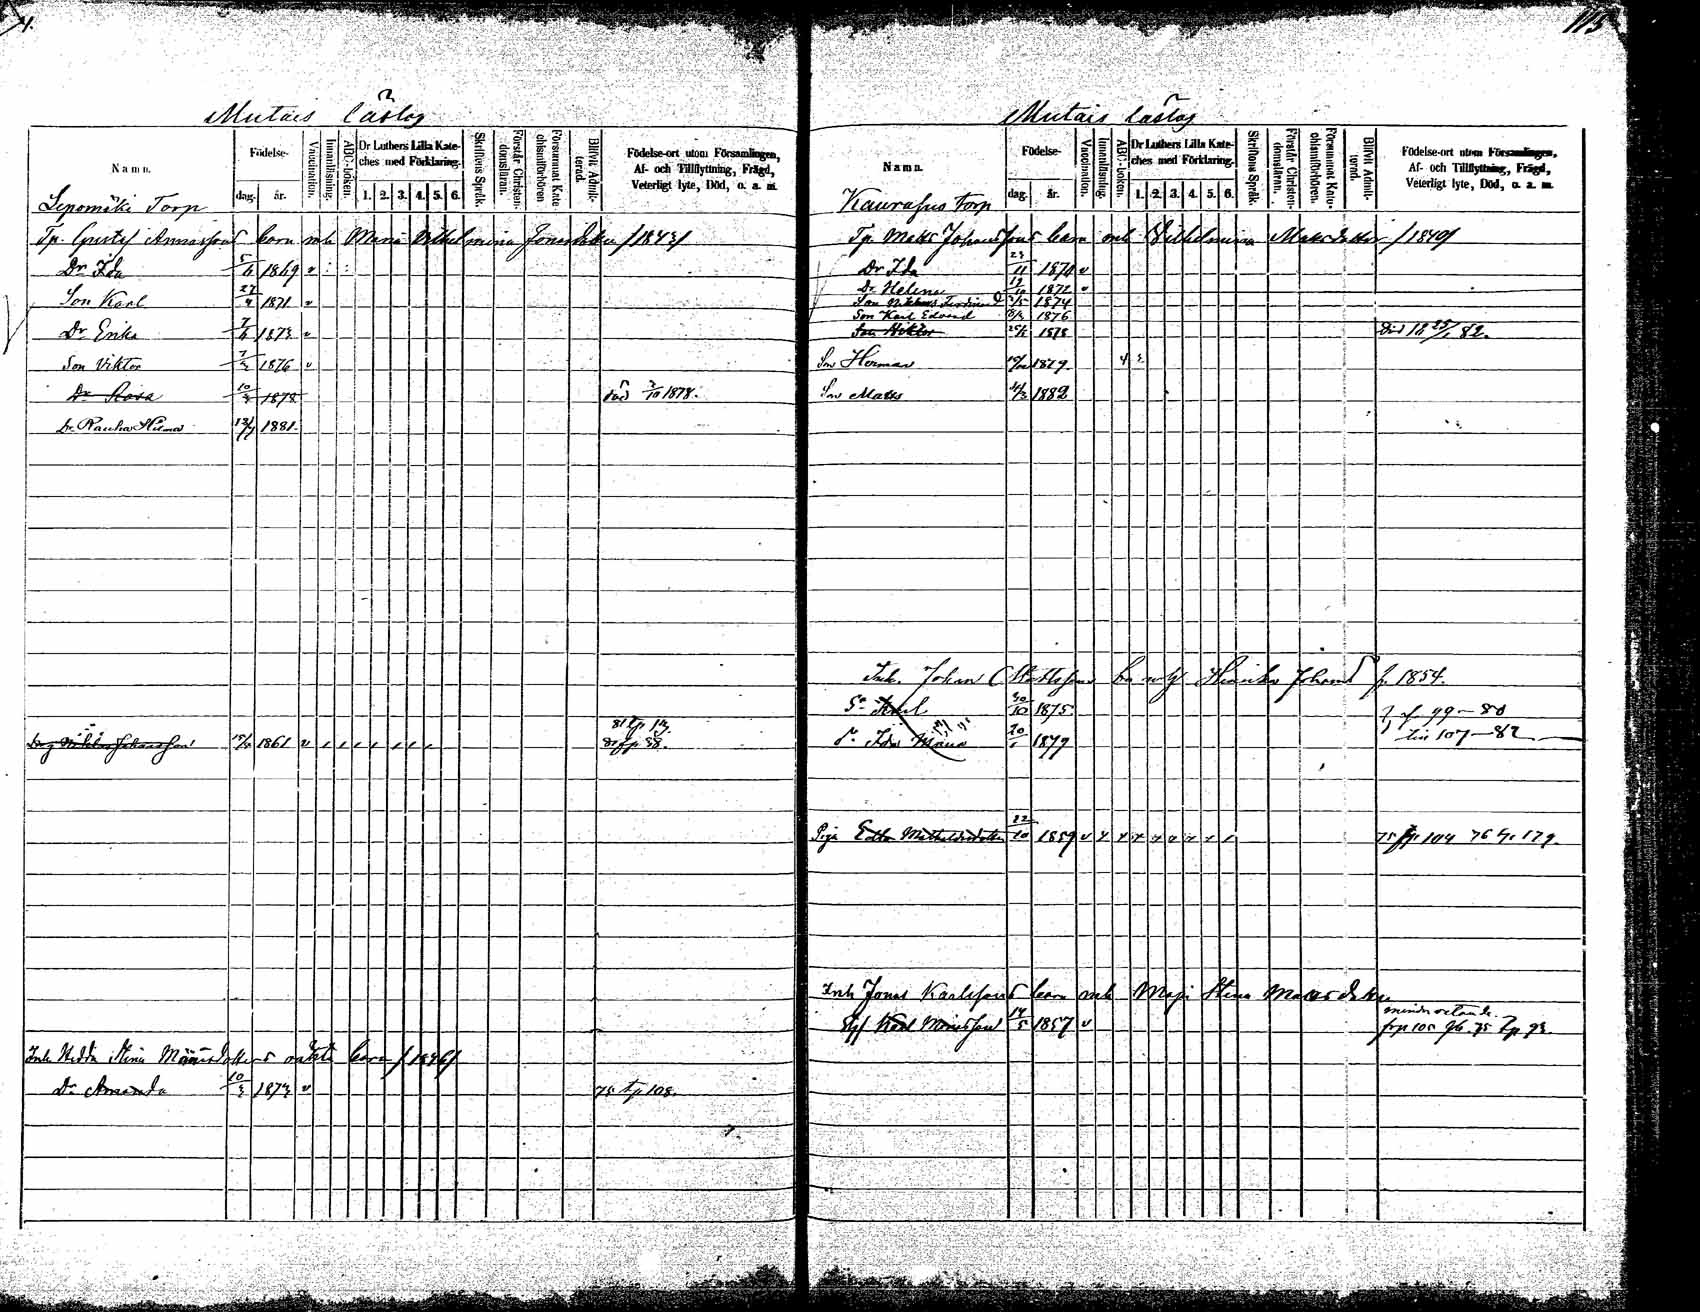 4.
Mutais läslag
Namn. Födelse- dag. år. Vaccination. Innanläsning. ABC-boken. Dr Luthers Lilla Kateches med Förklaring. 1. 2. 3. 4. 5. 6. Skriftens Språk. Förstår Christendomsläran. Försummat Katechismiförhören Blifvit Admitterad. Födelse-ort utom Församlingen, Af- och Tillflyttning, Frägd, Veterligt lyte, Död, o. a. m.
Lepomäki Torp
Tp. Gustaf Annassons barn mh Maria Vilhelmina Jonasdotter /1843/
Dr Ida 5/6 1869 v
Son Karl 27/4 1871 v
Dr Erika 7/6 1873 v
Son Viktor 7/2 1876 v
Dr Rosa 10/3 1878 död 2/10 1878.
Dr Rauha Hilma 13/7 1881.
81 tp 117.
Johansson 1861 v 82 fp 88.
Inh. Hedda Stina Mårtensdotters oäkta barn /1846/
Dr Amanda 10/3 1873 v 75 tp 108.
115
Mutais läslag
Namn. Födelse- dag. år. Vaccination. Innanläsning. ABC-boken. Dr Luthers Lilla Kateches med Förklaring. 1. 2. 3. 4. 5. 6. Skriftens Språk. Förstår Christendomsläran. Försummat Katechismiförhören. Blifvit Admitterad. Födelse-ort utom Församlingen, Af- och Tillflyttning, Frägd, Veterligt lyte, Död, o. a. m.
Kaurasus torp
Tp. Matts Johanssons barn mh Vilhelmina Mattsdotter /1840/
Dr Ida 23/11 1870 v
Dr Helena 12/10 1872 v
Son Niklas Ferdinand 1874
Son Karl Edvard 1876
Son Viktor 25/2 1878 död 18 25/1 82.
Son Herman 1879.
Son Matts 4/3 1882
Inh. Johan Mattssons bn m h Henrika Johansd f. 1854.
Sn Karl 30/10 1875. f. p 99-80
dr Ida Maria 20/1 1879 till 107-82
Piga Edla 22/10 1859 v 75 fp 104 76 tp 179.
Inh Jonas Karlssons barn mh Maja Stina Mattsdotter
Karl 14/5 1857 v
frp 105 76. 75 tp 93.